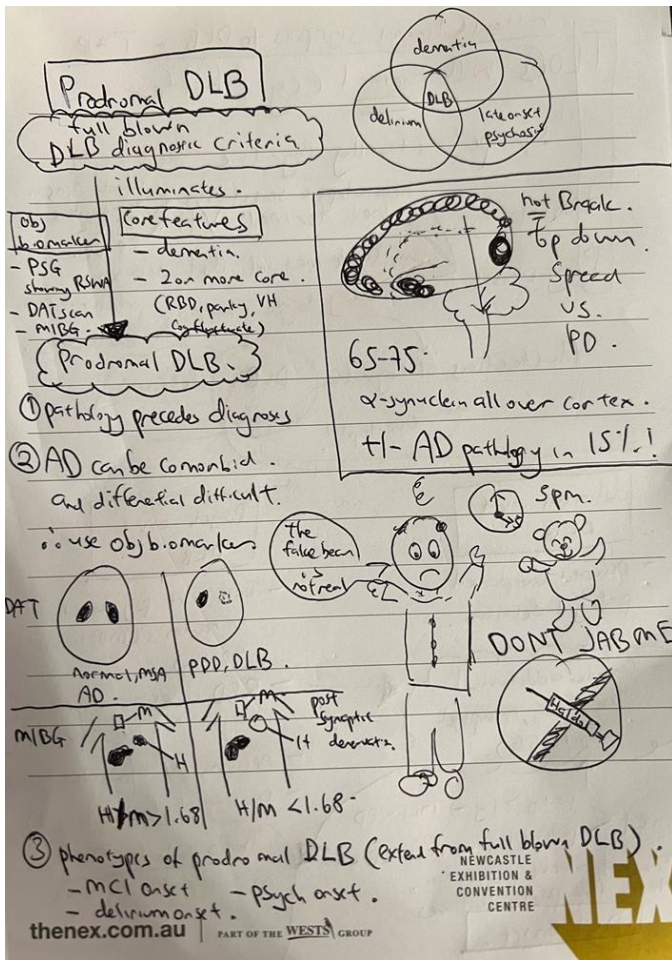 Prodromal DLB
full blown
DLB diagnostic criteria
dementia
delirium
DLB
late onset
psychosis
illuminates.
Obj
biomarker
- PSG
showing RSWA
- DATscan
- MIBG.
Core features
- dementia.
- 2 or more core.
(RBD, parky, VH
cog fluctuate)
Prodromal DLB.
not Braak.
Top down
Spread
vs.
PD.
65-75.
α-synuclein all over cortex.
+/- AD pathology in 15%!
① pathology precedes diagnoses
② AD can be comorbid.
and differential difficult.
∴ use Obj biomarkers
The
fake bear
is
not real
5pm.
DONT JAB ME
Haldol
DAT
normal, MSA
AD.
PDD, DLB.
MIBG
M
H
H/M > 1.68
M
H
post
synaptic
H/M < 1.68.
③ phenotypes of prodromal DLB (extend from full blown DLB).
- MCI onset
- psych onset.
- delirium onset.
NEWCASTLE
EXHIBITION &
CONVENTION
CENTRE
NEX
thenex.com.au
PART OF THE WESTS GROUP